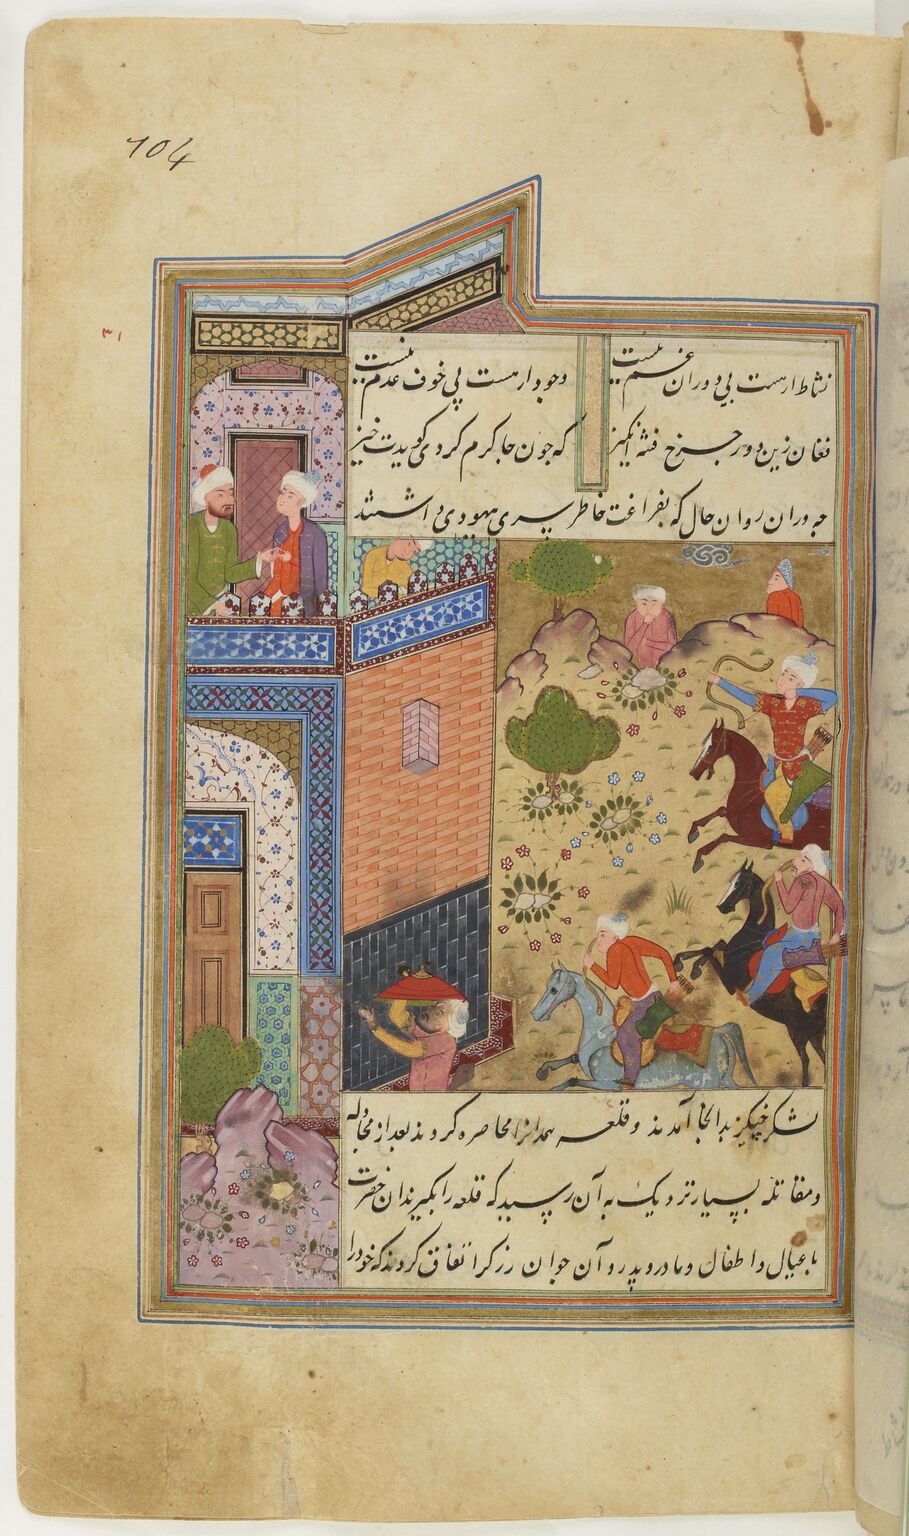 104
۳۱
نشاط ار هست بی دوران غم نیست وجود ار هست بی خوف عدم نیست
فغان زین دور چرخ فتنه انگیز که چون جا گرم کردی گویدت خیز
در آن حال که بفراغت خاطر بسری
لشکر چنگیز بدانجا آمدند و قلعه همدانرا محاصره کردند بعد از مجادله
و مقاتله بسیار نزدیک به آن رسید که قلعه را بگیرند آن حضرت
با عیال و اطفال و مادر و پدر و آن جوان زرگر اتفاق کردند که خود را